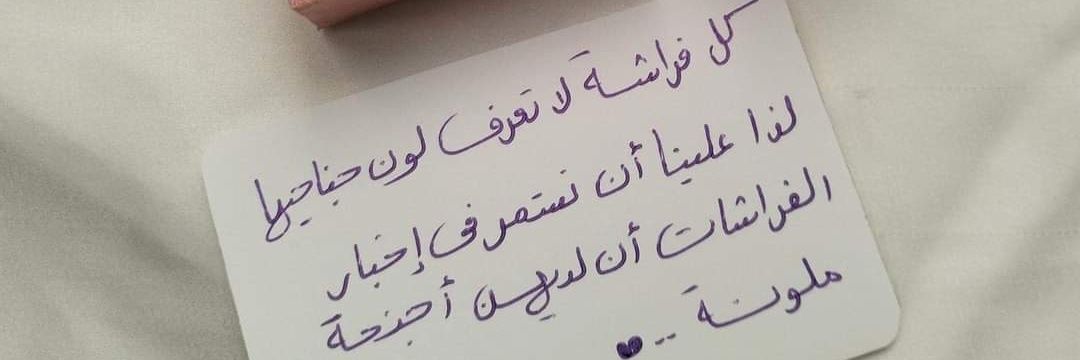 كل فراشة لا تعرف لون جناحيها
لذا علينا أن نستمر في إخبار
الفراشات أن لديهن أجنحة
ملونة .. ♥